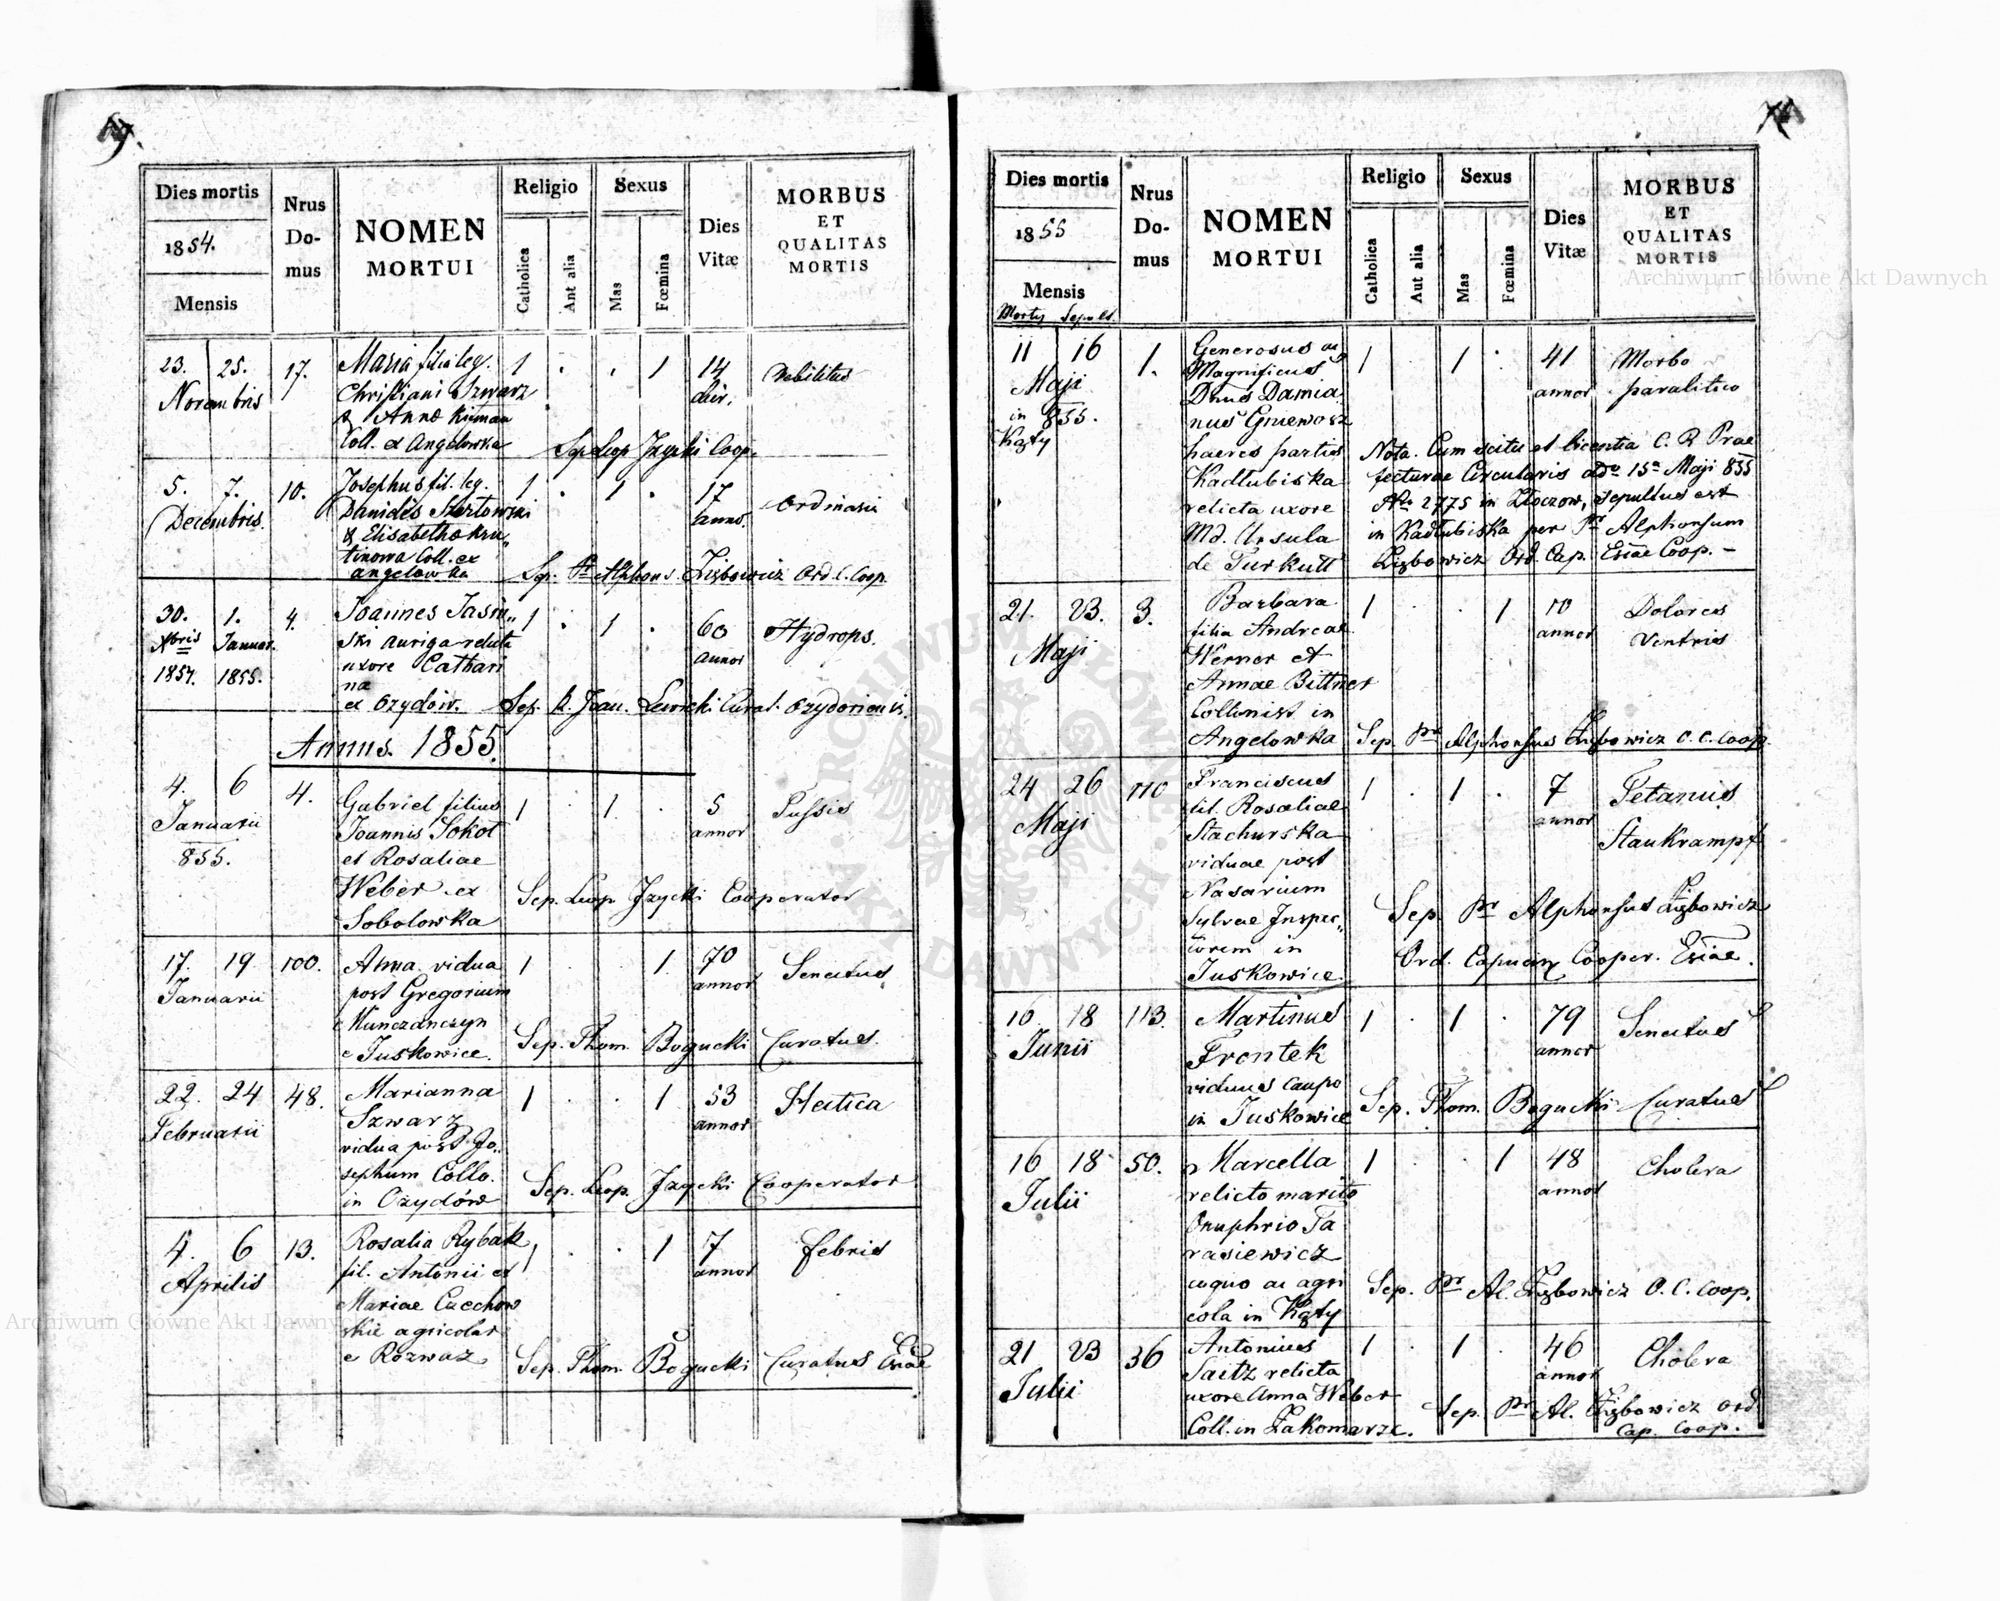 Dies mortis
1854.
Mensis
Nrus
Do-
mus
NOMEN
MORTUI
Religio
Catholica
Aut alia
Sexus
Mas
Fœmina
Dies
Vitæ
MORBUS
ET
QUALITAS
MORTIS
23. 25. 17. Maria filia leg. 1 . . 1 14 Debilitas
Novembris Christiani Szwarz dier.
& Annae
Coll. ex Angelowka Sep. Leop Jzycki Coop.
5. 7. 10. Josephus fil. leg. 1 . 1 . 17 Ordinaria
Decembris.
& Elisabethae Kru„
tinowa Coll. ex
Angelowka Sep. Pr Alphons. Zięborwicz Ord. C. Coop.
30. 1. 4. Joannes Jasin„ 1 . 1 . 60 Hydrops.
Xbris Januar. ski auriga relicta annor
1854. 1855. uxore Cathari
na
ex Ożydów. Sep. R. Joan. Lewicki Curat. Ozydoviensis.
Annus. 1855.
4. 6 4. Gabriel filius 1 . 1 . 5 Tussis
Januarii Joannis Sokol annor
855. et Rosaliae
Weber ex Sep. Leop. Jzycki Cooperator
Sobolowka
17. 19. 100. Anna vidua 1 . . 1. 70 Senectus
Januarii post Gregorium annor
Kunczanczyn
e Juskowice. Sep. Thom. Bogucki Curatus.
22. 24 48. Marianna 1 . . 1 53 Hectica
Februarii Szwarz annor
vidua post Jo„
sephum Collo.
in Ożydów Sep. Leop. Jzycki Cooperator
4. 6 13. Rosalia Rybak 1 . . 1 7 febris
Aprilis fil. Antonii et annor
Mariae Czechow
skie agricolar
e Rozważ Sep. Thom. Bogucki Curatus Eccae
Dies mortis
1855
Mensis
Mortis Sepult.
Nrus
Do-
mus
NOMEN
MORTUI
Religio
Catholica
Aut alia
Sexus
Mas
Fœmina
Dies
Vitæ
MORBUS
ET
QUALITAS
MORTIS
11 16 1. Generosus ac 1 . 1 . 41 Morbo
Maji Magnificus annor paralitico
in 855. Dnus Damia
Kąty nus Gniewosz
haeres partis Nota. Cum scitu et licentia C. R. Prae
Kadłubiska fecturae Circularis ddo 15a Maji 855
relicta uxore No 2775 in Złoczow, sepultus est
Md. Ursula in Kadłubiska per Pr Alphonsum
de Turkułł Zięborwicz Ord. Cap. Eccae Coop. –
21. 23. 3. Barbara 1 . . 1 10 Dolores
Maji filia Andreae annor Ventris
Werner et
Annae Bittner
Collonist in
Angelowka Sep. Pr Alphonsus Zięborwicz O. C. Coop.
24 26 110 Franciscus 1 . 1 . 7 Tetanus
Maji fil. Rosaliae annor Staukrampf
Stachurska
viduae post
Nasarium Sep. Pr Alphonsus Zięborwicz
Sylvae Inspec„
torem in Ord. Capucin Cooper. Eccae.
Juskowice
16. 18 113. Martinus 1 . 1 . 79 Senectus
Junii Frontek annor
viduus caupo
in Juskowice Sep. Thom. Bogucki Curatus
16 18 50. Marcella 1 . . 1 48 Cholera
Julii relicto marito annor
Onuphrio Ta
rasiewicz
agri Sep. Pr Al. Zięborwicz O. C. Coop.
cola in Kąty
21 23 36 Antonius 1 . 1 . 46 Cholera
Julii Saitz relicta annor
uxore Anna Weber Sep. Pr Al. Zięborwicz Ord
Coll. in Zakomarze. Cap. Coop.
Archiwum Główne Akt Dawnych
Archiwum Główne Akt Dawnych
ARCHIWUM GŁÓWNE
AKT DAWNYCH